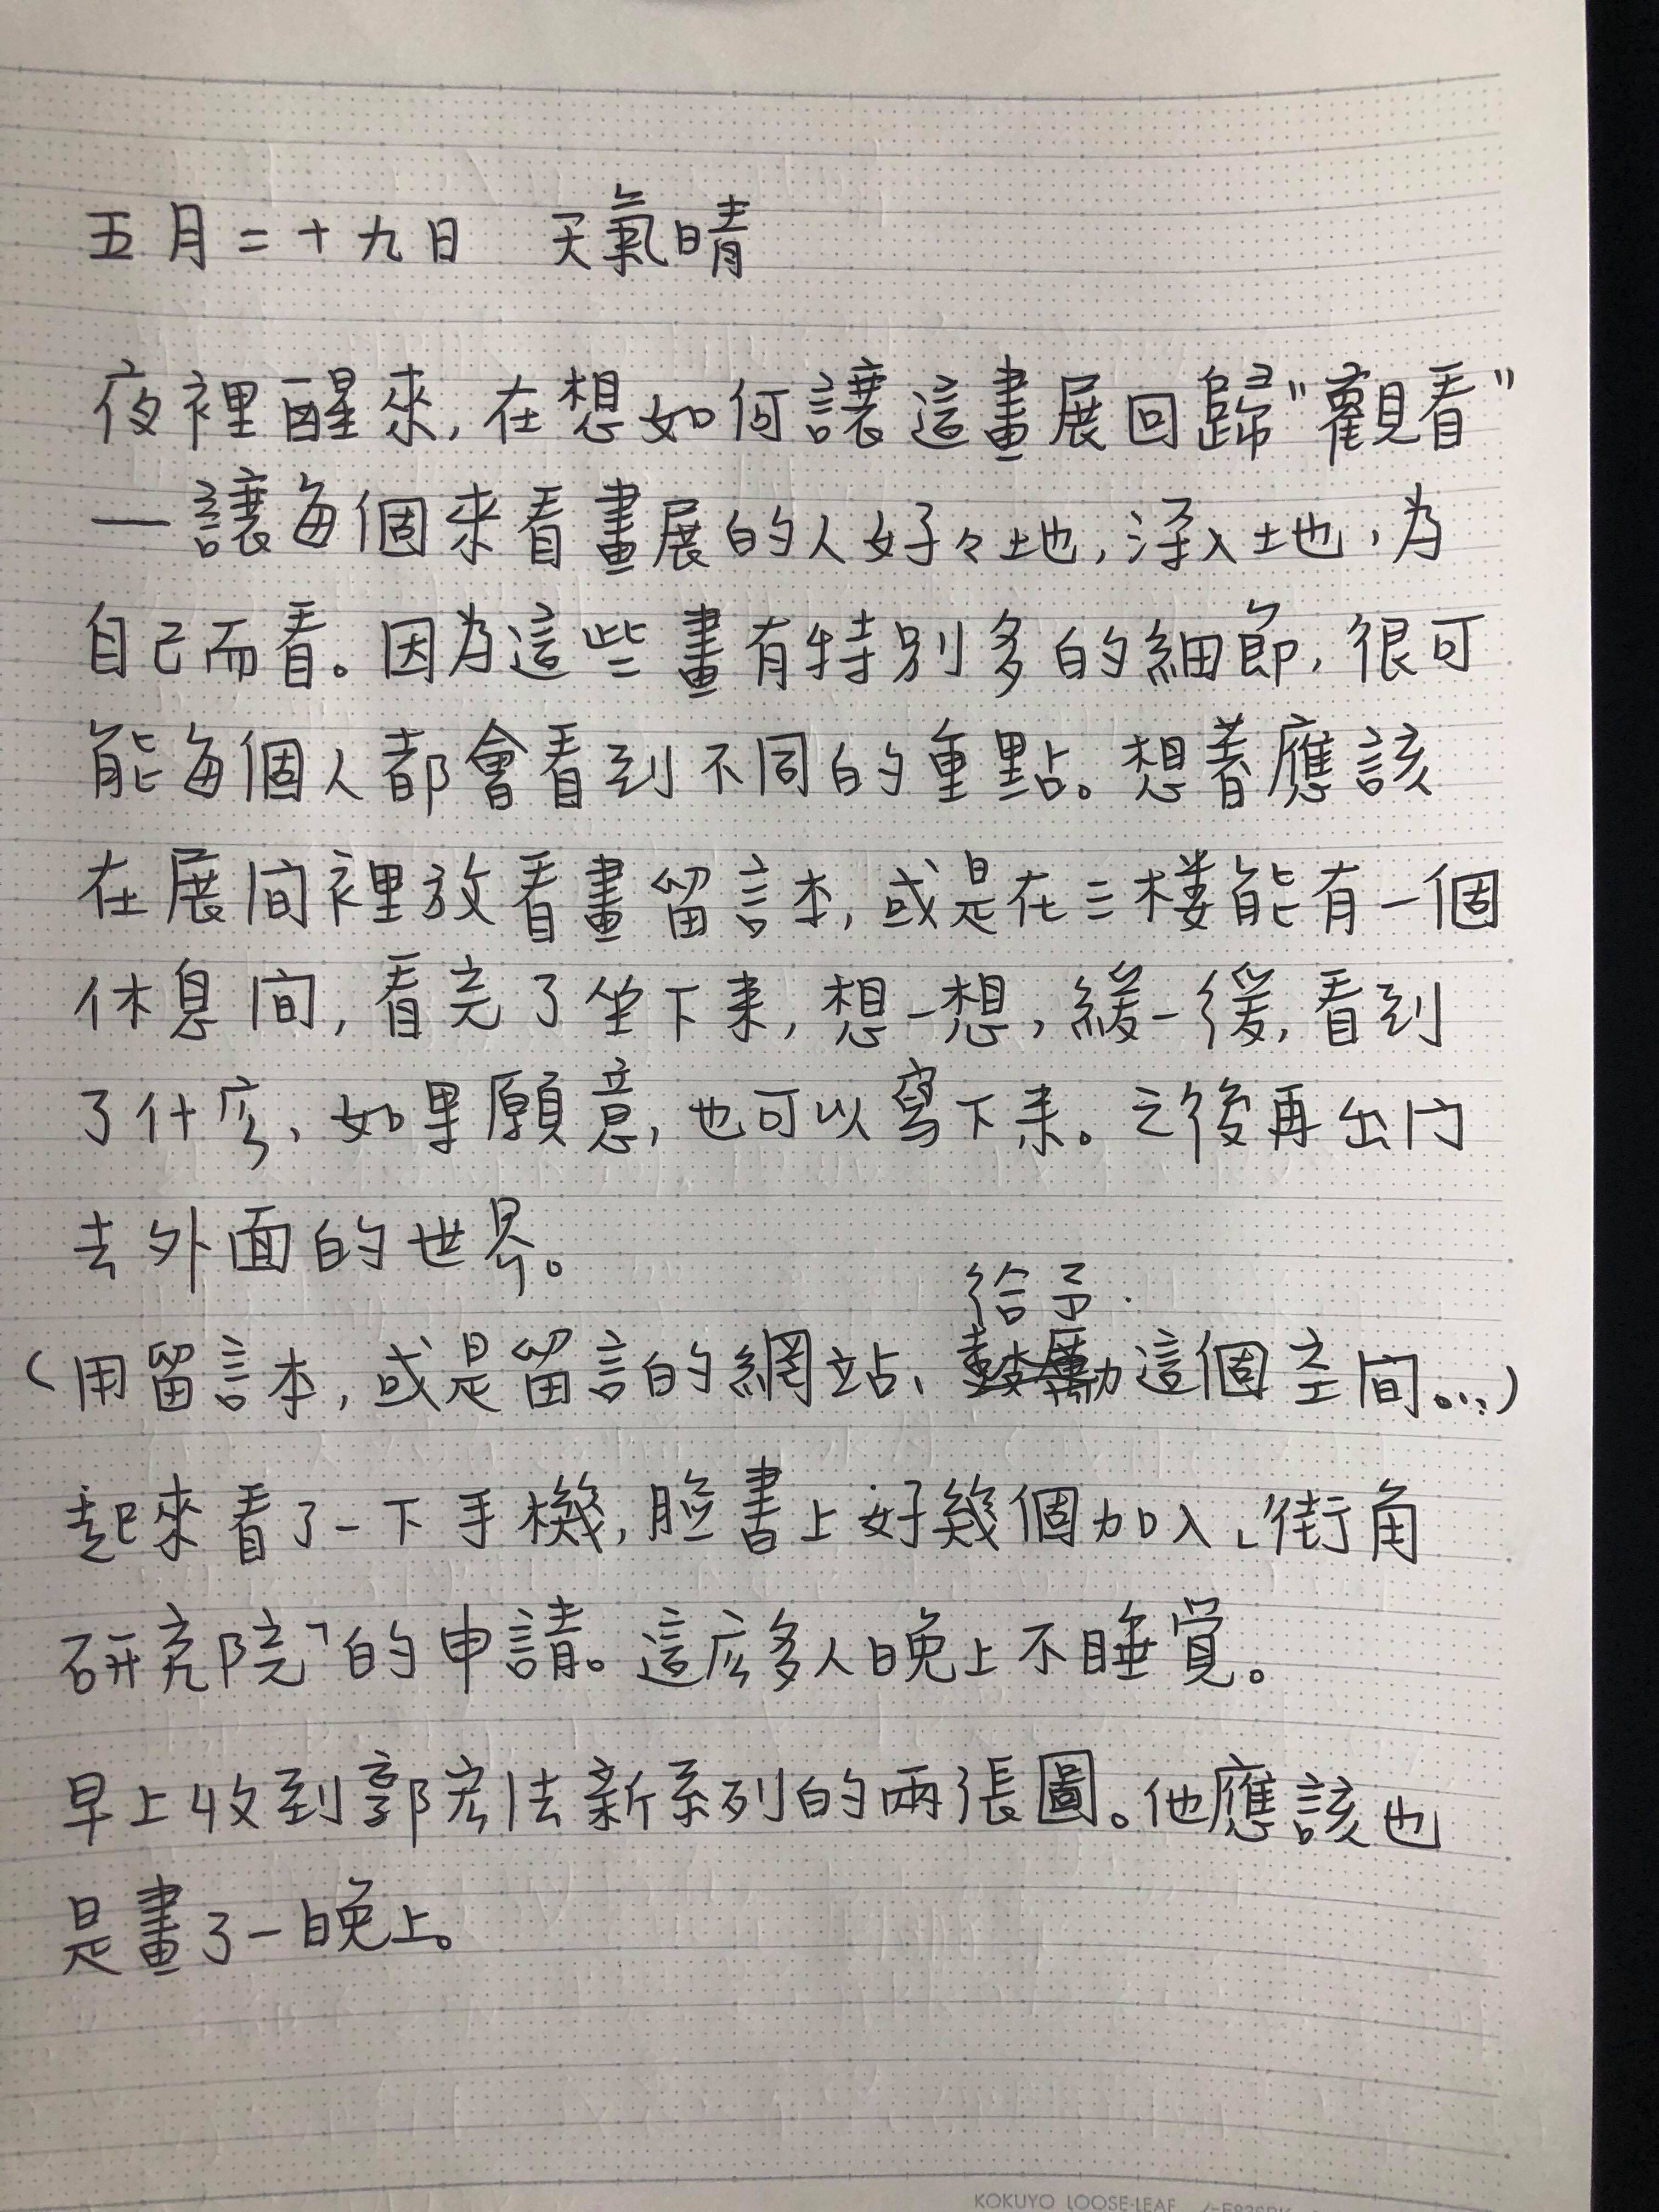 五月二十九日　天氣晴
夜裡醒來, 在想如何讓這畫展回歸"觀看"
—讓每個來看畫展的人好々地, 深入地, 為
自己而看。因為這些畫有特別多的細節, 很可
能每個人都會看到不同的重點。想著應該
在展间裡放看畫留言本, 或是在三楼能有一個
休息间, 看完了坐下来, 想一想, 緩一緩, 看到
了什麼, 如果願意, 也可以寫下来。之後再出门
去外面的世界。
給予
(用留言本, 或是留言的網站、鼓勵這個空间。...)
起來看了一下手機, 臉書上好幾個加入「街角
研究院」的申請。這麼多人晚上不睡覚。
早上收到郭宏法新系列的兩張圖。他應該也
是畫了一晚上。
KOKUYO LOOSE-LEAF